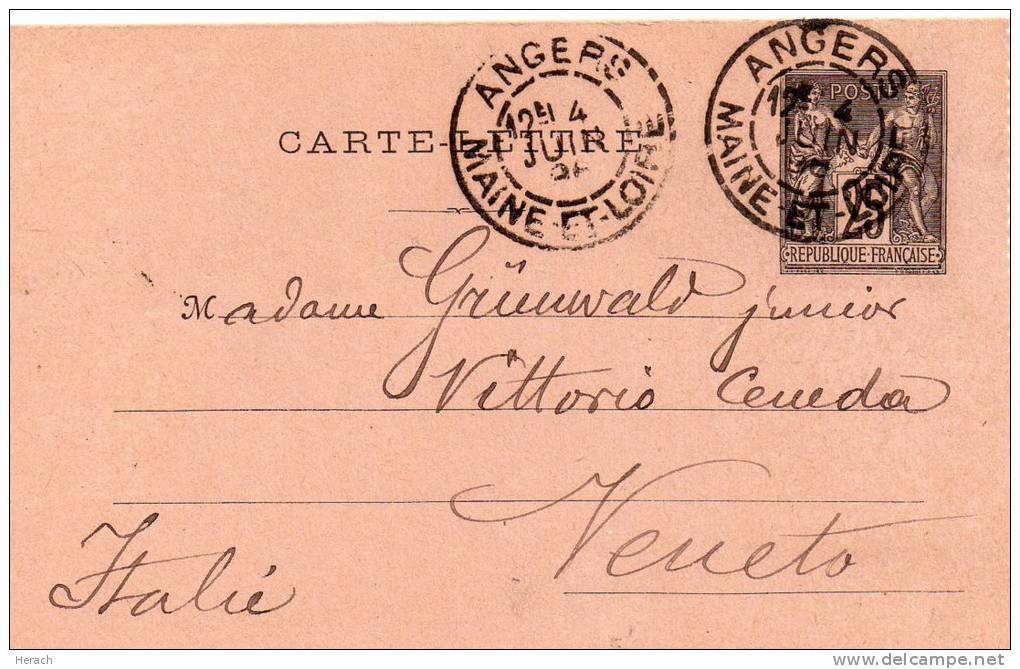 ANGERS
12E 4
JUIN
MAINE-ET-LOIRE
ANGERS
12E 4
JUIN
MAINE-ET-LOIRE
POSTE
25
REPUBLIQUE·FRANÇAISE
CARTE-LETTRE
Madame Grünwald junior
Vittorio Ceneda
Veneto
Italie
Herach
http://www.delcampe.net